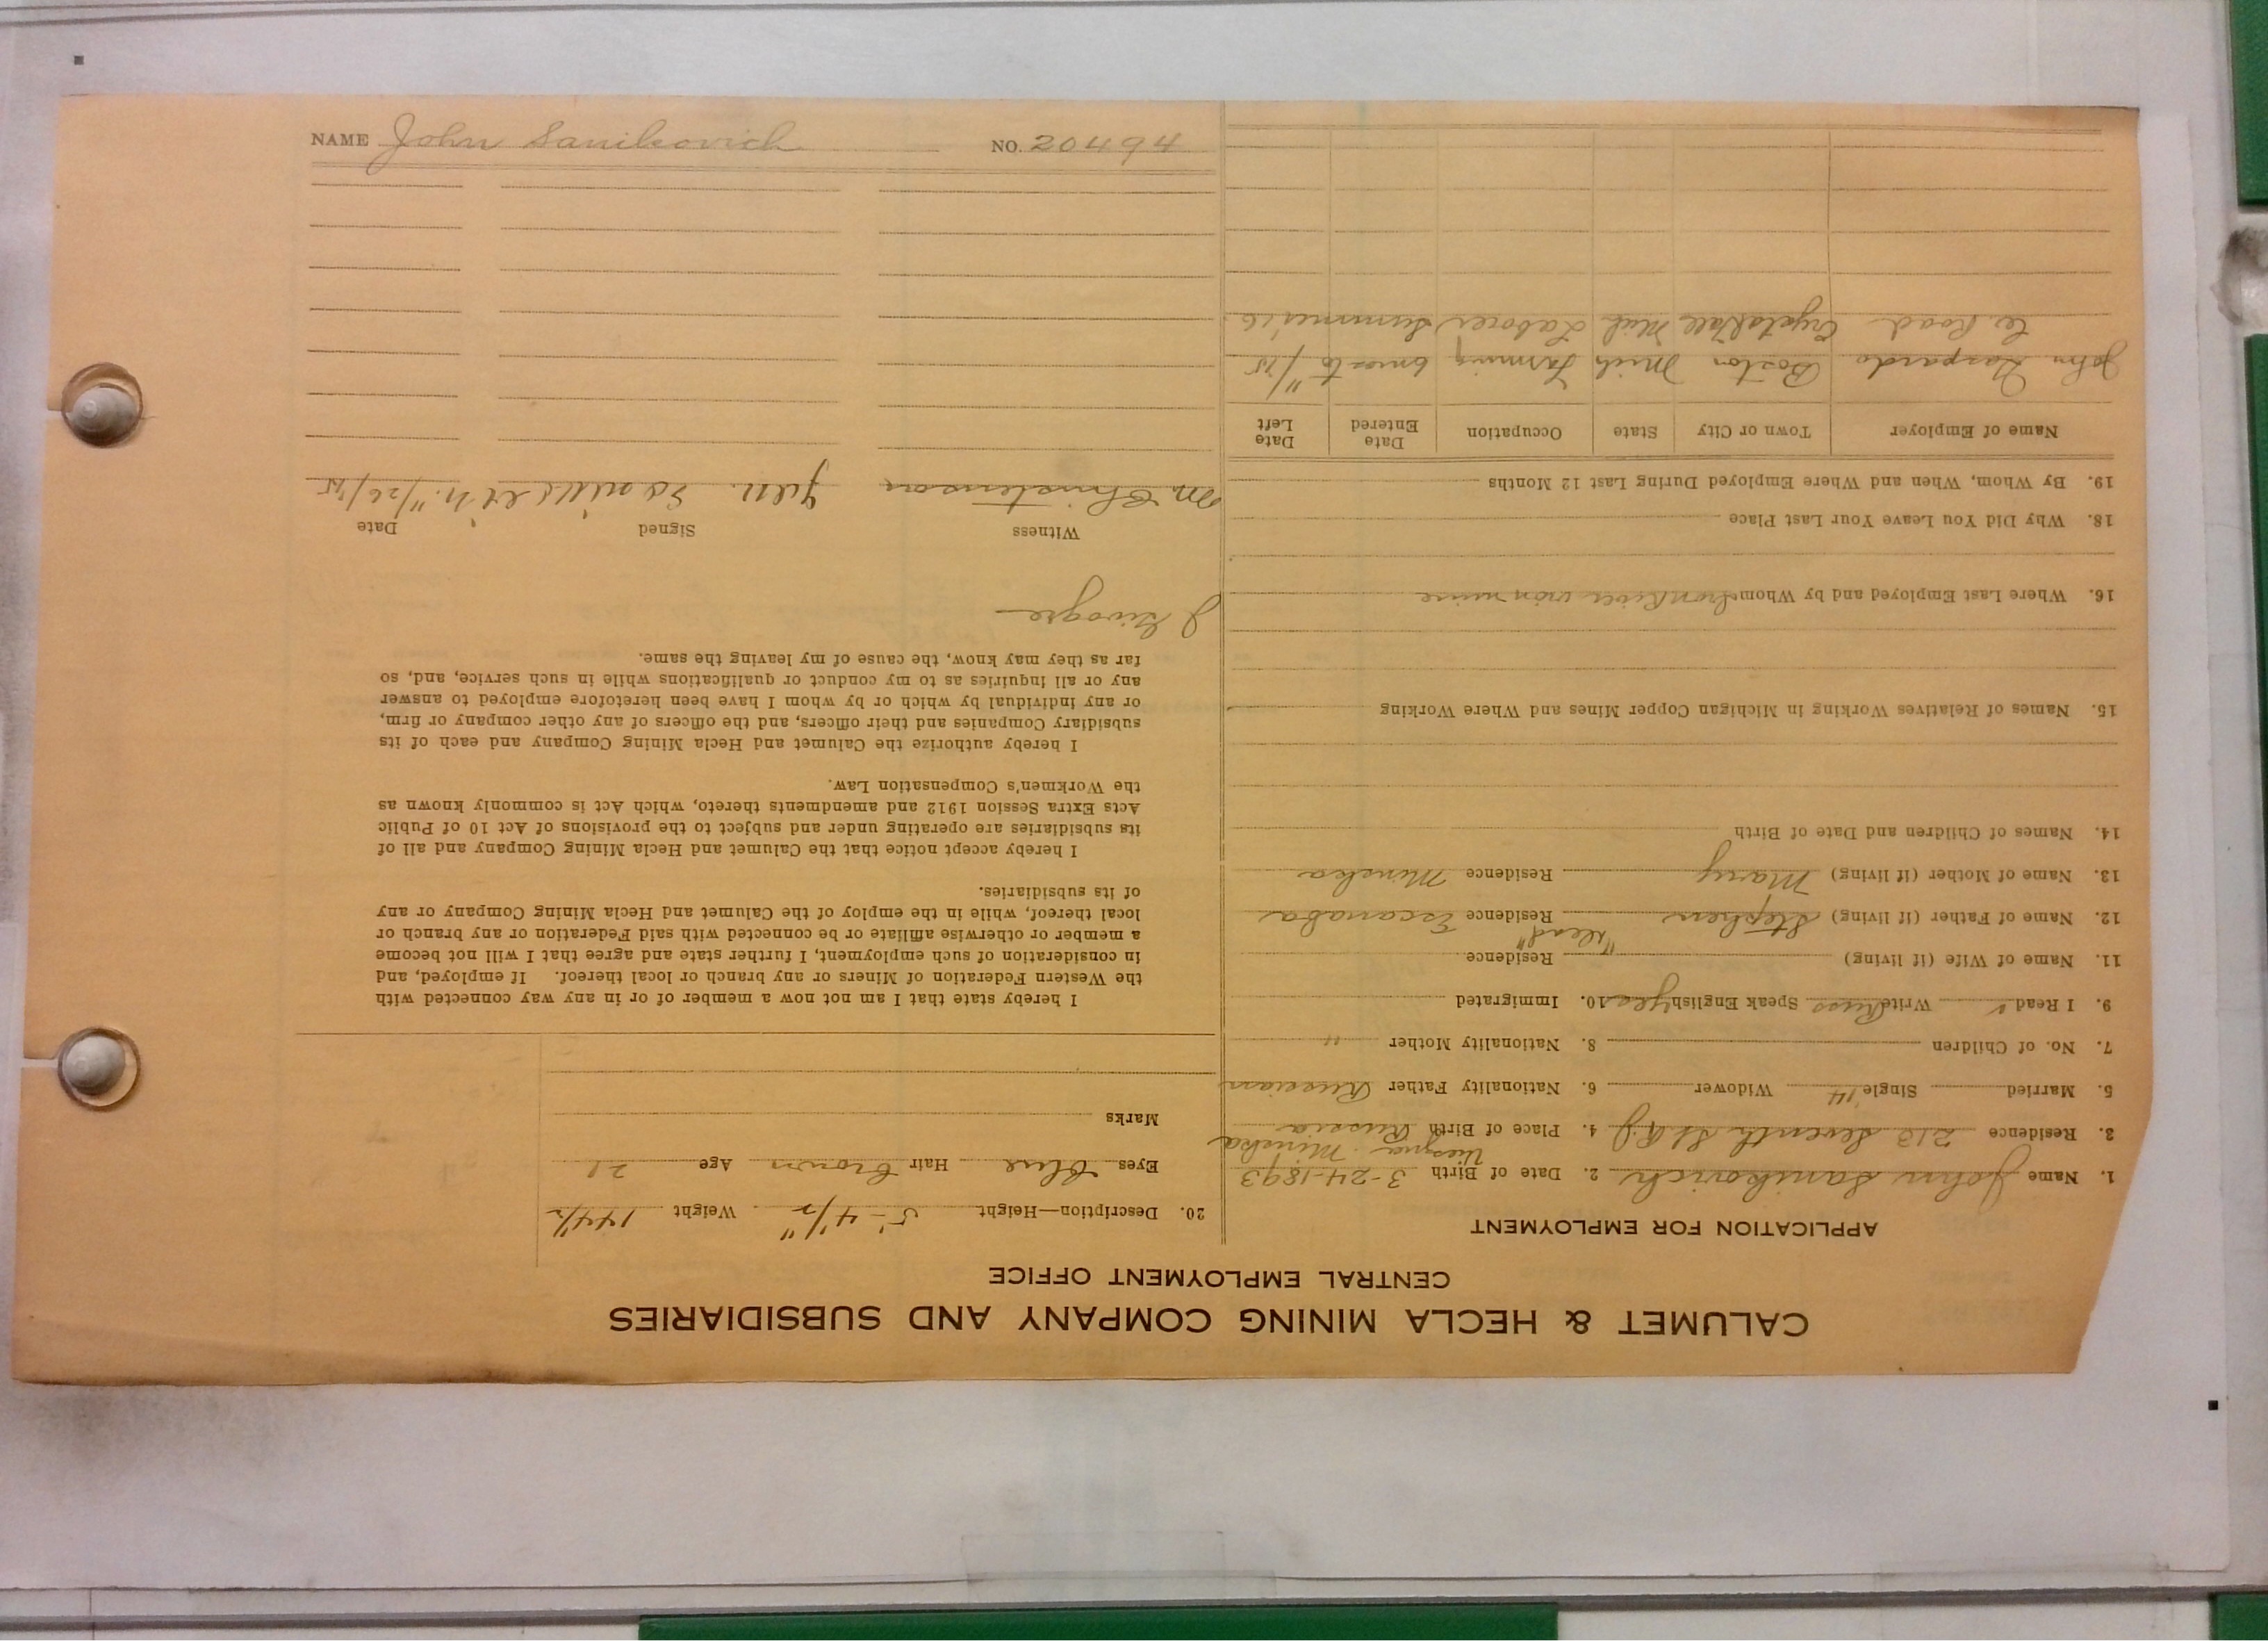 CALUMET & HECLA MINING COMPANY AND SUBSIDIARIES
CENTRAL EMPLOYMENT OFFICE
APPLICATION FOR EMPLOYMENT
1. Name John Sanikovich 2. Date of Birth 3-24-1893
Minska
3. Residence 213 Seventh St 4. Place of Birth Russia
5. Married Single Widower 6. Nationality Father Russian
7. No. of Children 8. Nationality Mother "
9. I Read Write Russ Speak English yes 10. Immigrated
11. Name of Wife (if living) Residence
12. Name of Father (if living) Stephen "dead" Residence Escanaba
13. Name of Mother (if living) Mary Residence Minska
14. Names of Children and Date of Birth
15. Names of Relatives Working in Michigan Copper Mines and Where Working
16. Where Last Employed and by Whom Iron River iron mine
18. Why Did You Leave Your Last Place
19. By Whom, When and Where Employed During Last 12 Months
Name of Employer Town or City State Occupation Date Entered Date Left
John Boston Mich Farming 6 mos to 11/15
Co. Road Crystal Fall Mich Laborer Summer
20. Description—Height 5'-4 1/2" Weight 144 1/2
Eyes Blue Hair Brown Age 21
Marks
I hereby state that I am not now a member of or in any way connected with
the Western Federation of Miners or any branch or local thereof. If employed, and
in consideration of such employment, I further state and agree that I will not become
a member or otherwise affiliate or be connected with said Federation or any branch or
local thereof, while in the employ of the Calumet and Hecla Mining Company or any
of its subsidiaries.
I hereby accept notice that the Calumet and Hecla Mining Company and all of
its subsidiaries are operating under and subject to the provisions of Act 10 of Public
Acts Extra Session 1912 and amendments thereto, which Act is commonly known as
the Workmen's Compensation Law.
I hereby authorize the Calumet and Hecla Mining Company and each of its
subsidiary Companies and their officers, and the officers of any other company or firm,
or any individual by which or by whom I have been heretofore employed to answer
any or all inquiries as to my conduct or qualifications while in such service, and, so
far as they may know, the cause of my leaving the same.
Witness Signed Date
M. Christenson 11/26/15
NAME John Sanikovich NO. 20494